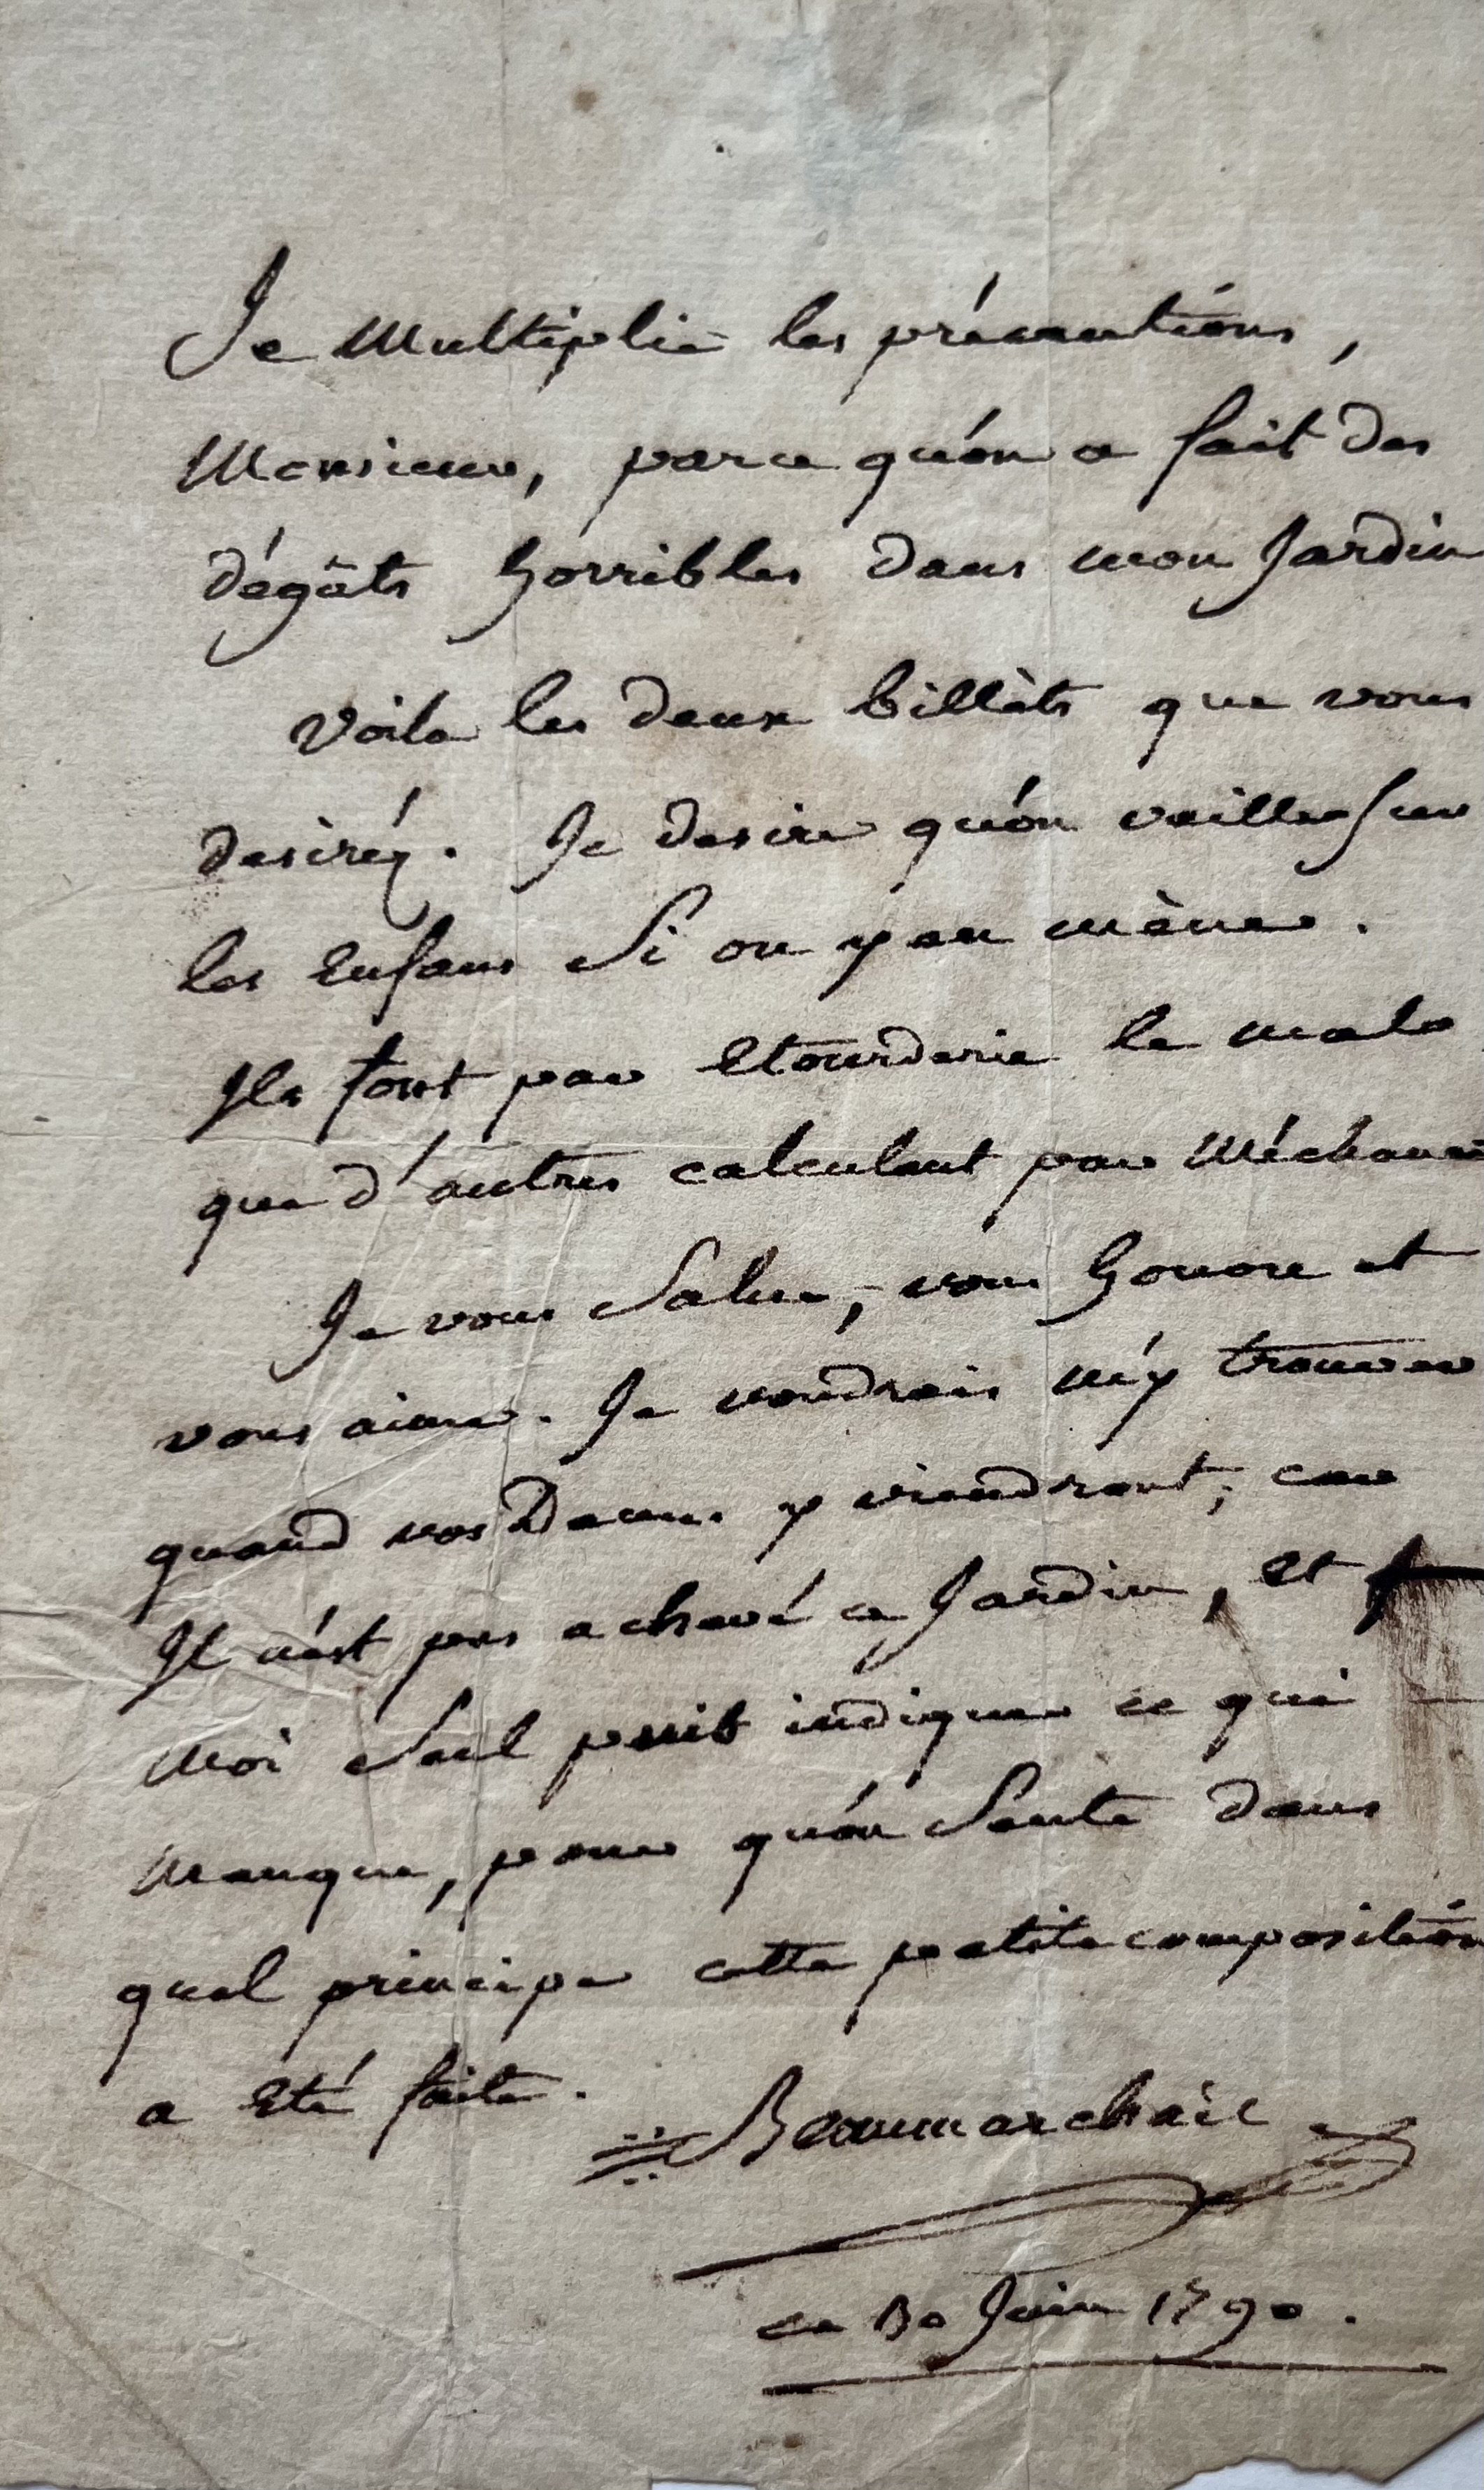 Je Multiplie les précautions,
Monsieur, parce qu'on a fait des
dégâts horribles dans mon Jardin
Voila les deux billets que vous
desiréz. Je desire qu'on veille sur
les Enfans Si on y en mène.
Ils font par Etourderie le mal
que d'autres calculent par Méchance
Je vous Salue, vous honore et
vous aime. Je voudrais m'y trouver
quand vos Dames y viendront; car
Il n'est pas achevé ce Jardin, Et
Moi Seul puis indiquer ce qui
Manque, pour qu'on Sente dans
quel principe cette petite composition
a Eté faite.
Beaumarchais
ce 30 Juin 1790.